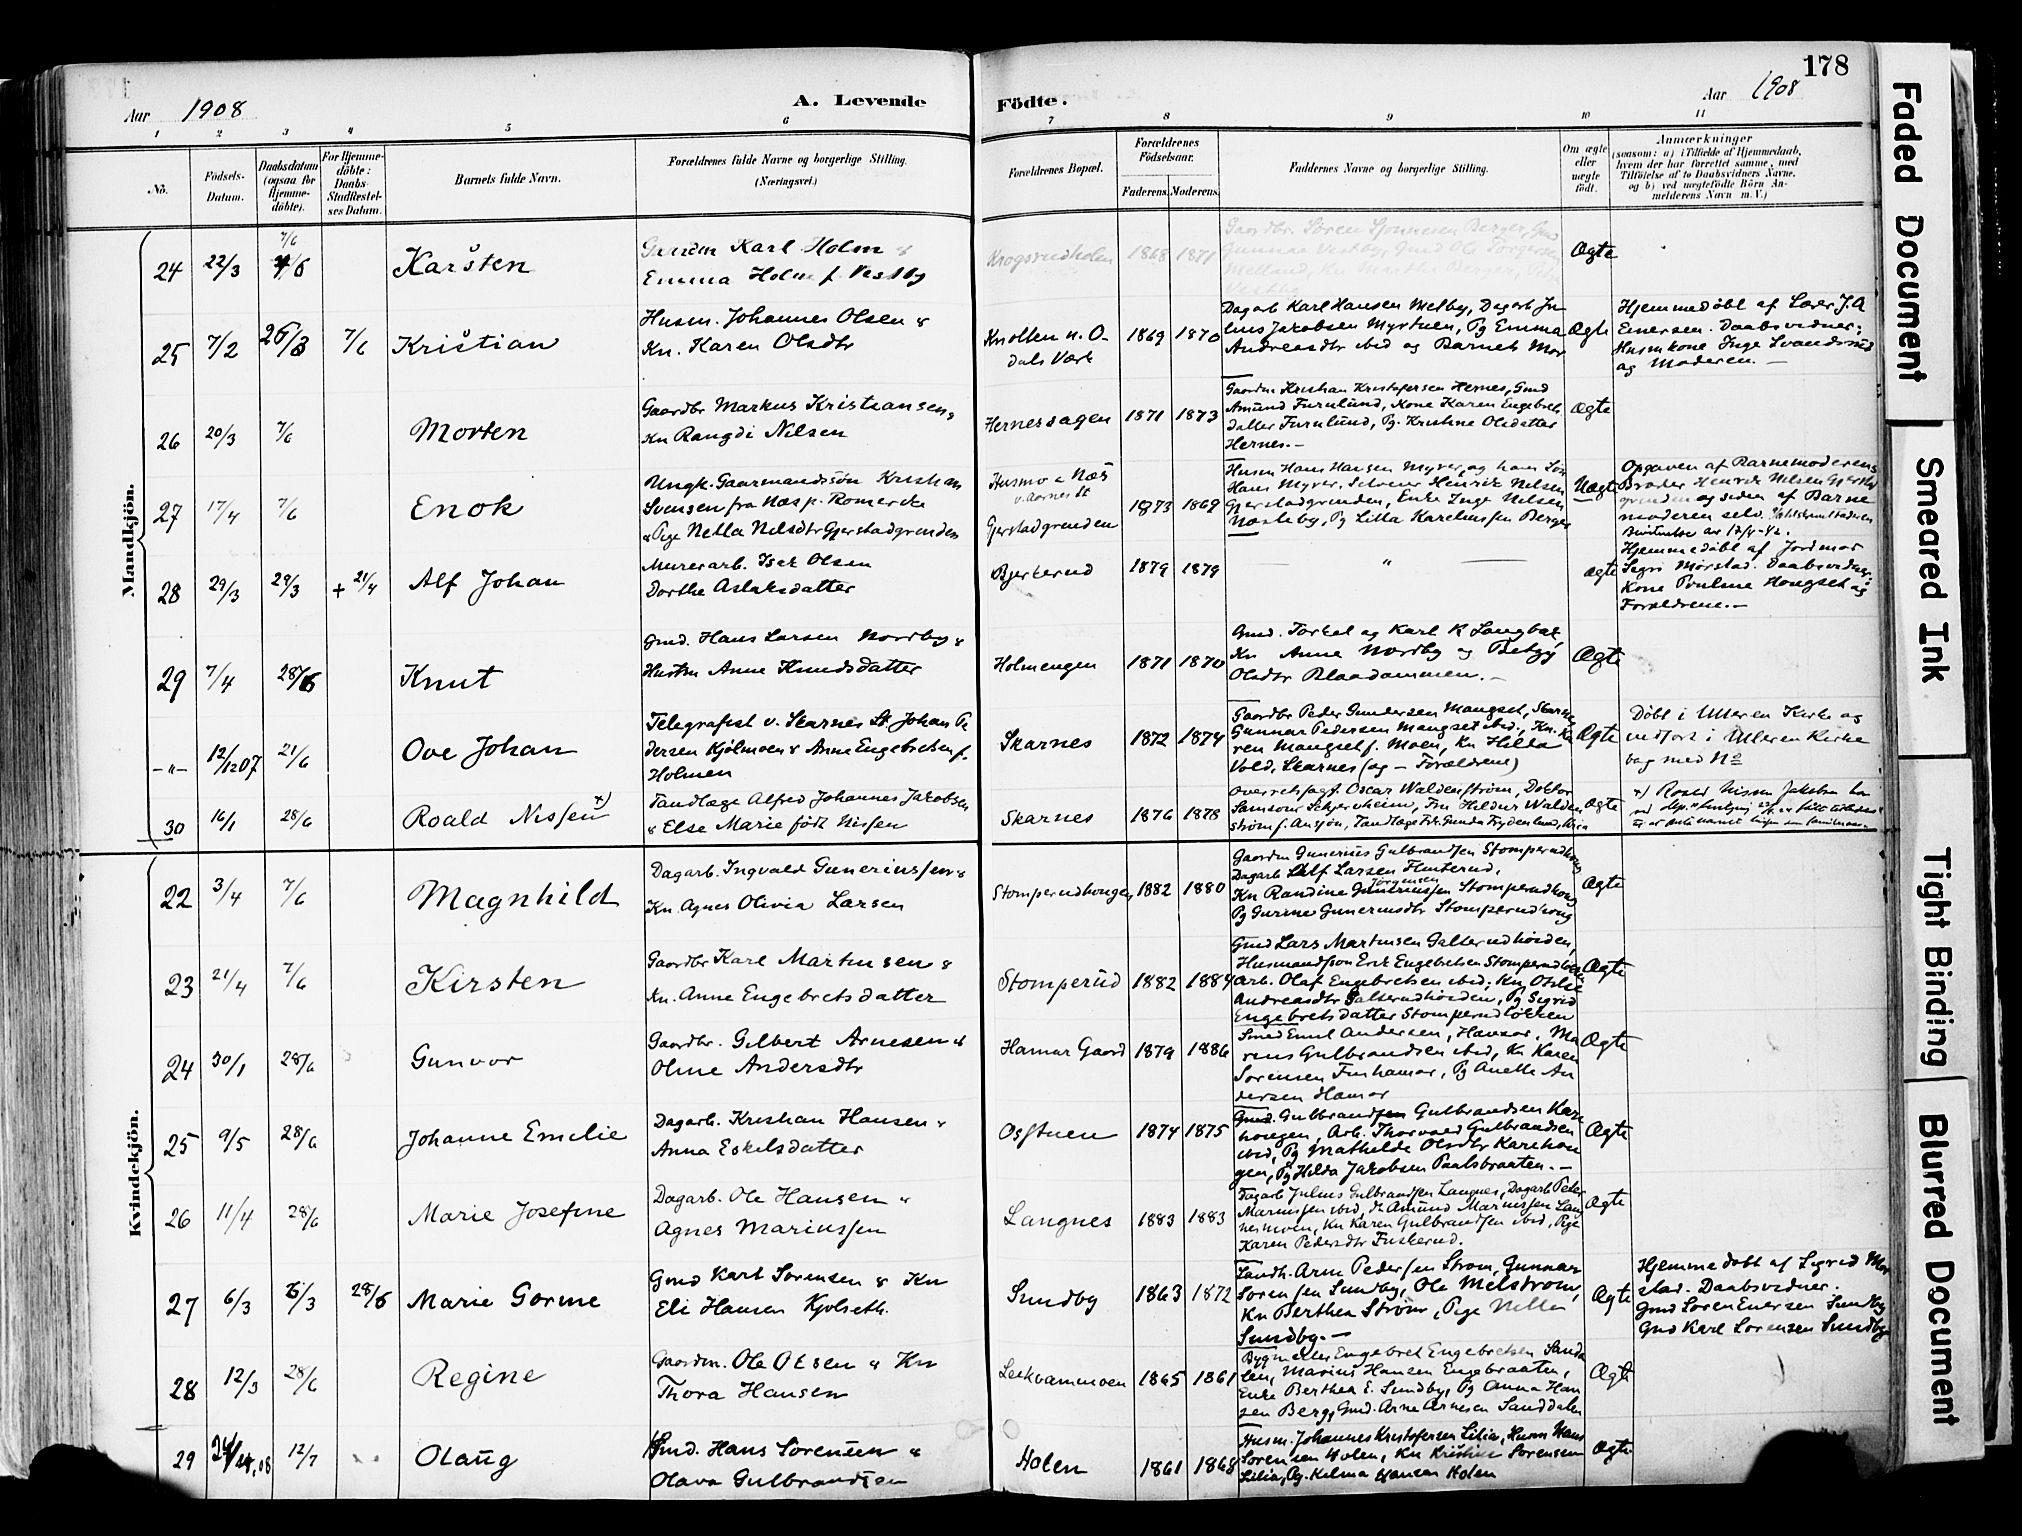 178
Aar 1908
A. Levende
Födte.
Aar 1908
1 2 3 4 5 6 7 8 9 10 11
No.
Födsels-
Datum.
Daabsdatum
(ogsaa for
Hjemme-
döbte).
For Hjemme-
döbte:
Daabs-
Stadfæstel-
ses Datum.
Barnets fulde Navn.
Forældrenes fulde Navne og borgerlige Stilling.
(Næringsvei.)
Forældrenes Bopæl.
Forældrenes
Födselsaar.
Faderens. Moderens.
Faddernes Navne og borgerlige Stilling.
Om ægte
eller
uægte
födt.
Anmærkninger
(saasom: a) i Tilfælde af Hjemmedaab,
hvem der har forrettet samme, med
Tilföielse af to Daabsvidners Navne,
og b) ved uægtefödte Börn An-
melderens Navn m. V.)
Mandkjön.
24 22/3 7/6 Karsten
Karl Holm &
Emma Holm f. Vestby
Krogsrudholen 1868 1871
Gaardbr. Sören Berger, Gmd
Gunnar Vestby, Gmd Ole Torgersen
Melland, Kn Marthe Berger,
Vestby
Ægte
25 7/2 7/6 Kristian
Husm. Johannes Olsen &
Kn. Karen Olsdtr
Knollen n. O-
dals Værk
1869 1870
Dagarb Karl Hansen Melby, Dagarb Ju
lius Jakobsen Myrtuen, Pg Emma
Andreasdtr ibid og Barnets Mor
Ægte
Hjemmedøbt af Lærer J. A
Einersen. Daabsvidner:
Huskone Inge
og Moderen. —
26 20/3 7/6 Morten
Gaardbr Markus Kristiansen &
Kn Rangdi Nilsen
Hernessagen 1871 1873
Gaardm Kristian Kristofersen Hernes, Gmd
Amund Furulund, Kone Karen Engebrets
datter Furulund, Pg. Kristine Olsdatter
Hernes. —
Ægte
27 17/4 7/6 Enok
Ungk. Gaarmandssön Kristian
Svensen fra Næs p. Romerike
& Pige Nella Nilsdtr Gjerstadgrenden
Husmo i Næs
v. Aarnes St
Gjerstadgrenden
1873 1869
Husm Hans Hansen Myrer, og hans Sön
Hans Myrer, Selveier Henrik Nilsen
Gjerstadgrenden, Enke Inge Nilsen
Næsteby, Pg Lilla Karelinssen Berger
Uægte
Opgaven af Barnemoderens
Broder Henrik Nilsen Gjerstad
grenden og siden af Barne
moderen selv.
28 29/3 29/3 + 21/4 Alf Johan
Murerarb. Isak Olsen
Dorthe Aslaksdatter
Bjerkerud 1879 1879
— " —
Ægte
Hjemmedøbt af Jordmor
Segri Mørstad. Daabsvidner:
Kone Pauline Hongset og
Forældrene. —
29 7/4 28/6 Knut
Gmd. Hans Larsen Nordby &
Hustru Anne Knudsdatter
Holmengen 1871 1870
Gmd. Torkel og Karl K Langbak,
Kn Anne Nordby og Betzy
Olsdtr Blaadammen. —
Ægte
— " — 12/12 07 21/6 Ove Johan
Telegrafist v. Skarnes St. Johan Pe
dersen Kjölmoen & Anne Engebretsen f.
Holmen
Skarnes 1872 1874
Gaardbr Peder Gundersen Mangset, Skarnes
Gunnar Pedersen Mangset ibid., Kn. Ka
ren Mangset f. Moen, Kn Hilda
Vold, Skarnes (og — Forældrene)
Ægte
Døbt i Ulleren Kirke og
indført i Ulleren Kirke
bog med No
30 16/1 28/6 Roald Nissen +)
Tandlæge Alfred Johannes Jakobsen
& Else Marie født Nissen
Skarnes 1876 1878
Overretssagf. Oscar Waldenström, Doktor
Samson Schjervheim, Fru Hildur Walden
ström f. Ansjön, Tandlæge Frk. Gunda Frydenlund,
Ægte
+) Roald Nissen Jakobsen
Kvindekjön.
22 3/4 7/6 Magnhild
Dagarb. Ingvald Gunerinssen &
Kn. Agnes Olivia Larsen
Stomperudhougen 1882 1880
Gaardm Gunerius Gulbrandsen Stomperudhoug
Dagarb Alf Larsen Flinterud,
Jörgensen
Kn Randine Stomperudhoug
Pg Gurine Gunerinsdtr Stomperudhoug
Ægte
23 21/4 7/6 Kirsten
Gaardbr Karl Martinsen &
Kn. Anne Engebretsdatter
Stomperud 1882 1884
Gmd Lars Martinsen Galterudhöiden,
Husmandsson Erik Engebretsen Stomperud
Arb. Olaf Engebretsen ibid; Kn Otilie
Andreasdtr Galterudhöiden, Pg Sigrid
Engebretsdatter Stomperudlökken
Ægte
24 30/1 28/6 Gunvor
Gaardbr. Gilbert Arnesen &
Oline Andersdtr
Hamar Gaard 1879 1886
Smed Emil Andersen, Hamar, Ma
rius Gulbrandsen ibid, Kn Karen
Sörensen Furhamar, Pg Anette An
dersen Hamar
Ægte
25 9/5 28/6 Johanne Emelie
Dagarb. Kristian Hansen &
Anna Eskelsdatter
Osstuen 1874 1875
Gmd. Gulbrandsen Kare
hougen, Arb. Thorvald Gulbrandsen
ibid, Pg Mathilde Olsdtr Karehou
gen, Pg Hilda Jakobsen Paalsbraaten. —
Ægte
26 11/4 28/6 Marie Josefine
Dagarb. Ole Hansen &
Agnes Mariussen
Langnes 1883 1883
Dagarb Julius Gulbrandsen Langnes, Dagarb Peter
Marinssen ibid, Amund Marinssen Lang
nesmoen, Kn Karen Gulbrandsen ibid, Pige
Karen Pedersdtr Fuskerud.
Ægte
27 6/3 6/3 28/6 Marie Gorine
Gmd Karl Sørensen & Kn
Eli Hansen Kjolseth.
Sundby 1863 1872
Landh. Arne Pedersen Strøm, Gunnar
Sørensen Sundby, Ole Melstrøm,
Kn Berthea Strøm, Pige Nella
Sundby. —
Ægte
Hjemmedøbt af Sigrid Mør
stad. Daabsvidner.
Gmd Søren Enersen Sundby
Gmd Karl Sørensen Sundby
28 12/3 28/6 Regine
Gaardm. Ole Olsen & Kn
Thora Hansen
Leekvammoen 1865 1861
Bygmester Engebret Engebretsen Sandda
len, Marius Hansen Engebraaten,
Enke Berthea E. Sundby, Pg Anna Han
sen Berg, Gmd. Arne Arnesen Sanddalen
Ægte
29 12/7 Olaug
Gmd. Hans Sørensen &
Olava Gulbrandsen
Holen 1861 1868
Husm. Johannes Kristofersen Lilia, Husm Hans
Sørensen Holen, Kn Kristine Sørensen
Lilia, Pg. Helma Hansen Holen
Ægte
Faded Document
Smeared Ink
Tight Binding
Blurred Document